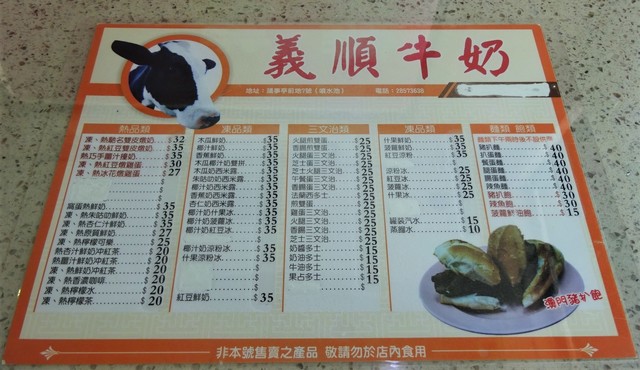 義順牛奶
地址：議事亭前地7號（噴水池）
電話：28573638
熱品類
凍、熱馳名雙皮燉奶 $32
凍、熱紅豆雙皮燉奶 $35
熱巧手薑汁撞奶 $35
凍、熱紅豆燉雞蛋 $30
凍、熱冰花燉雞蛋 $27
窩蛋熱鮮奶 $35
凍、熱朱咕叻鮮奶 $35
凍、熱杏仁汁鮮奶 $35
凍、熱原質鮮奶 $27
凍、熱檸檬可樂 $25
熱杏汁鮮奶沖紅茶 $20
熱薑汁鮮奶沖紅茶 $20
凍、熱鮮奶沖紅茶 $20
凍、熱香濃咖啡 $20
凍、熱檸檬水 $20
凍、熱檸檬茶 $20
凍品類
木瓜鮮奶 $35
椰汁鮮奶 $35
香蕉鮮奶 $35
木瓜椰汁奶雙拼 $35
木瓜奶西米露 $35
朱咕叻奶西米露 $35
椰汁奶西米露 $35
香蕉奶西米露 $35
杏仁奶西米露 $35
椰汁奶什果冰 $35
椰汁奶菠蘿冰 $35
椰汁奶紅豆冰 $35
椰汁奶涼粉冰 $35
什果涼粉冰 $35
紅豆鮮奶 $35
三文治類
火腿煎雙蛋 $25
香腸煎雙蛋 $25
火腿蛋三文治 $25
芝士蛋三文治 $25
芝士火腿三文治 $25
午餐蛋三文治 $25
香腸蛋三文治 $25
法蘭西多士 $25
煎雙蛋 $20
雞蛋三文治 $20
火腿三文治 $20
香腸三文治 $20
芝士三文治 $20
奶醬多士 $15
奶油多士 $15
牛油多士 $15
果占多士 $15
凍品類
什果鮮奶 $35
菠蘿鮮奶 $35
紅豆涼粉 $35
涼粉冰 $25
紅豆冰 $25
菠蘿冰 $25
什果冰 $25
罐裝汽水 $15
蒸餾水 $10
麵類 飽類
豬扒麵 $40
扒蛋麵 $40
餐蛋麵 $40
腿蛋麵 $40
腸蛋麵 $40
辣魚麵 $40
豬扒飽 $30
辣魚飽 $30
菠蘿鮮油飽 $15
澳門豬扒飽
非本號售賣之產品 敬請勿於店內食用